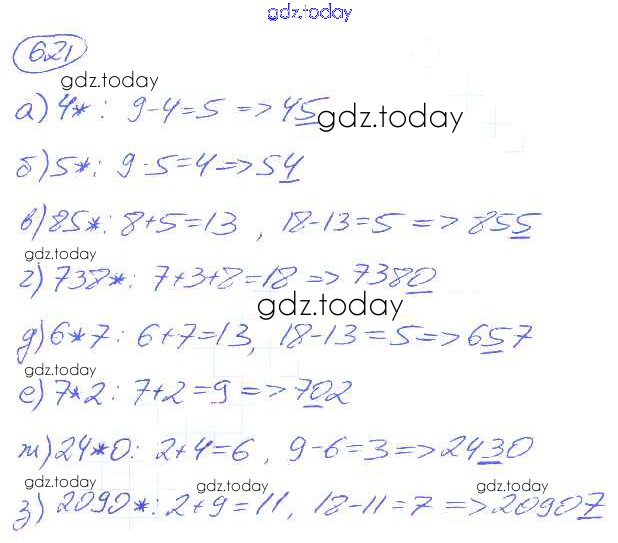 gdz.today
621
gdz.today
а) 4*: 9-4=5 => 45
gdz.today
б) 5*: 9-5=4 => 54
в) 85*: 8+5=13, 18-13=5 => 855
gdz.today
г) 738*: 7+3+8=18 => 7380
gdz.today
д) 6*7: 6+7=13, 18-13=5 => 657
gdz.today
е) 7*2: 7+2=9 => 702
ж) 24*0: 2+4=6, 9-6=3 => 2430
gdz.today gdz.today
з) 2090*: 2+9=11, 18-11=7 => 20907